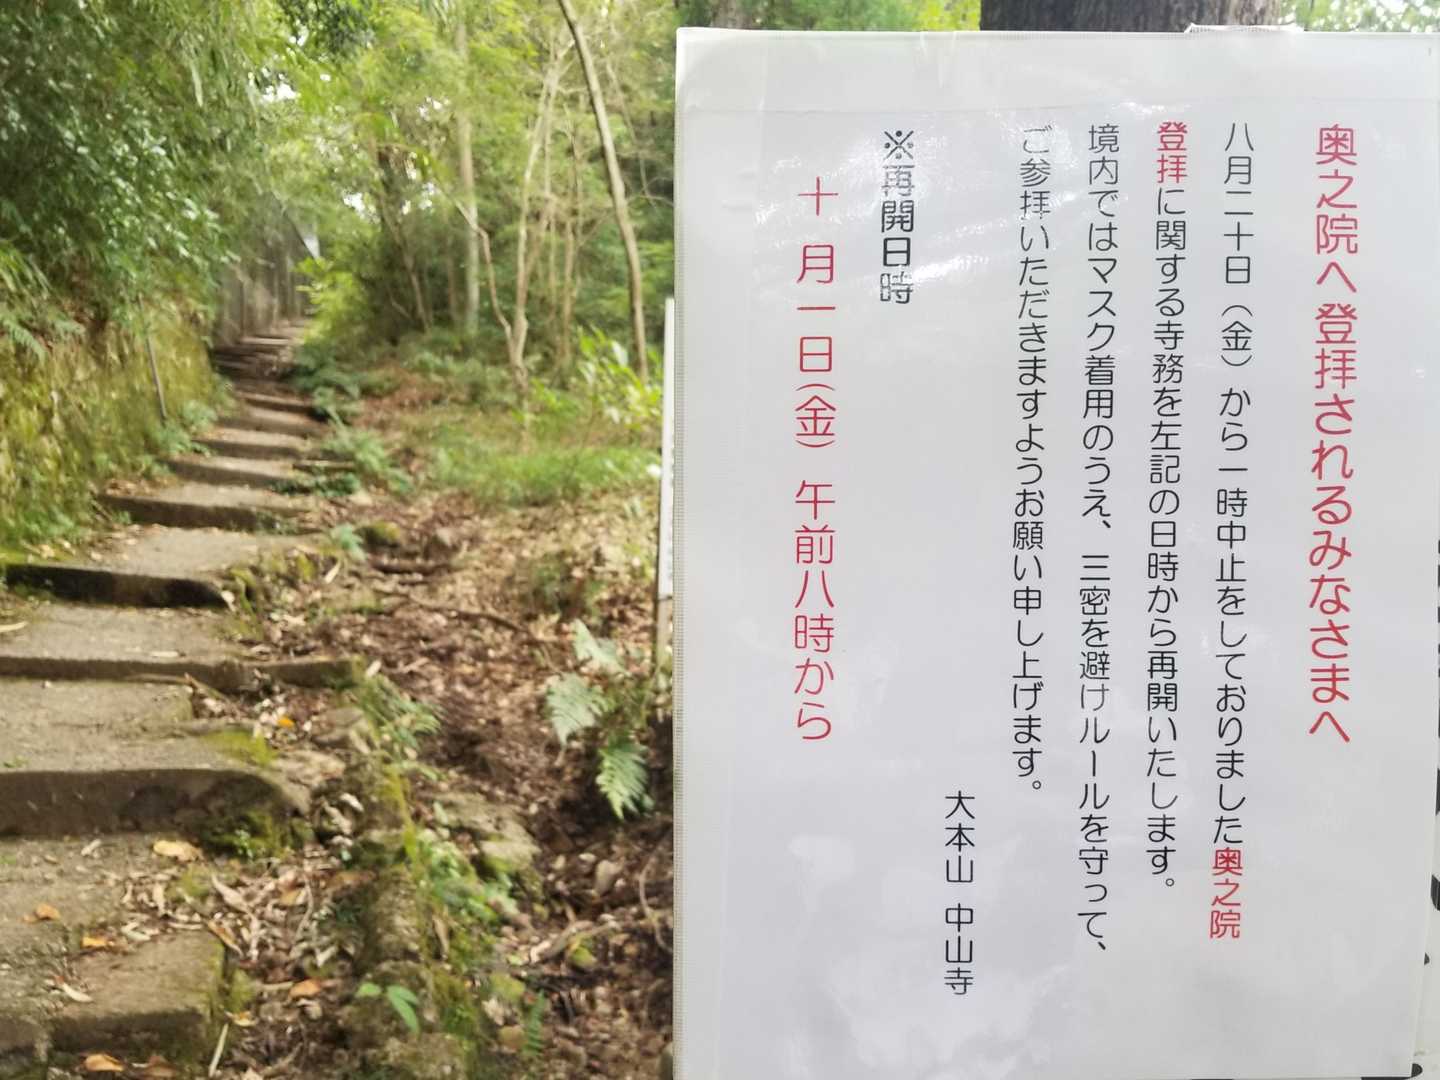 奥之院へ登拝されるみなさまへ
八月二十日（金）から一時中止をしておりました奥之院
登拝に関する寺務を左記の日時から再開いたします。
境内ではマスク着用のうえ、三密を避けルールを守って、
ご参拝いただきますようお願い申し上げます。
大本山 中山寺
※再開日時
十月一日（金）午前八時から